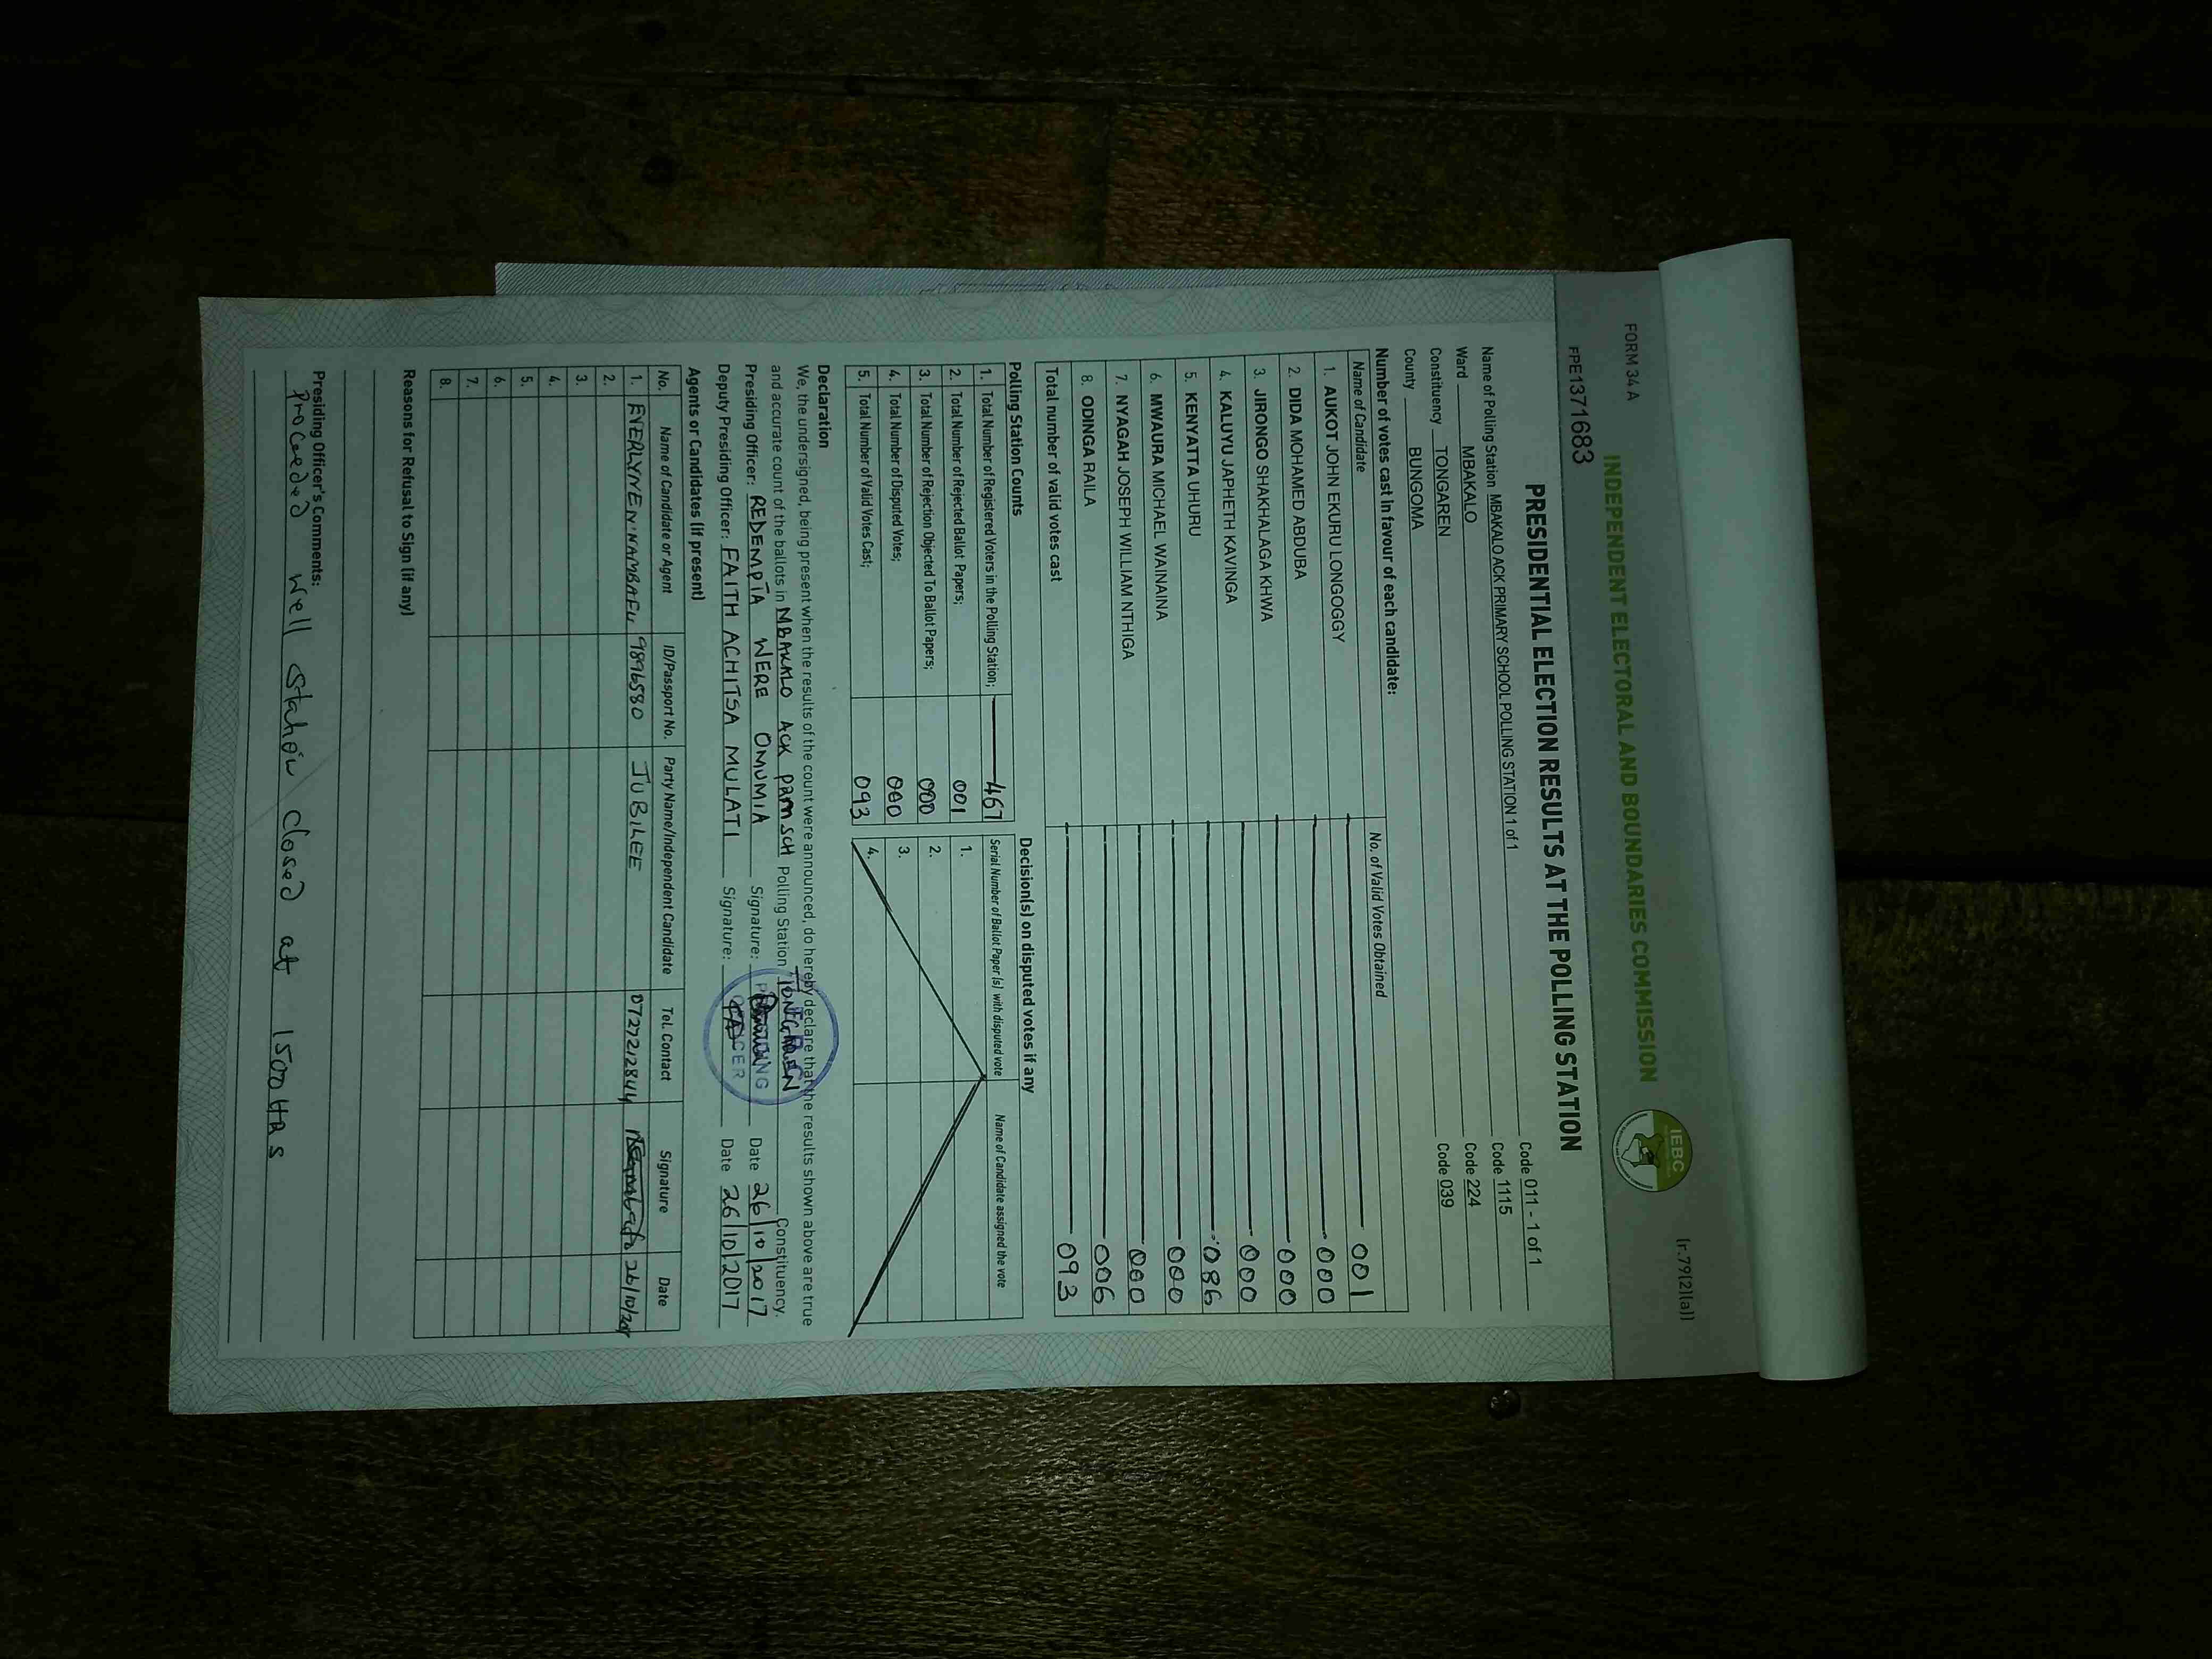 FORM 34 A
(r.79(2)(a))
INDEPENDENT ELECTORAL AND BOUNDARIES COMMISSION
IEBC
FPE1371683
PRESIDENTIAL ELECTION RESULTS AT THE POLLING STATION
Name of Polling Station MBAKALO ACK PRIMARY SCHOOL POLLING STATION 1 of 1 Code 011 - 1 of 1
Ward MBAKALO Code 1115
Constituency TONGAREN Code 224
County BUNGOMA Code 039
Number of votes cast in favour of each candidate:
Name of Candidate No. of Valid Votes Obtained
1. AUKOT JOHN EKURU LONGOGGY 001
2. DIDA MOHAMED ABDUBA 000
3. JIRONGO SHAKHALAGA KHWA 000
4. KALUYU JAPHETH KAVINGA 000
5. KENYATTA UHURU 086
6. MWAURA MICHAEL WAINAINA 000
7. NYAGAH JOSEPH WILLIAM NTHIGA 000
8. ODINGA RAILA 006
Total number of valid votes cast 093
Polling Station Counts
1. Total Number of Registered Voters in the Polling Station; 467
2. Total Number of Rejected Ballot Papers; 001
3. Total Number of Rejection Objected To Ballot Papers; 000
4. Total Number of Disputed Votes; 000
5. Total Number of Valid Votes Cast; 093
Decision(s) on disputed votes if any
Serial Number of Ballot Paper (s) with disputed vote Name of Candidate assigned the vote
1.
2.
3.
4.
Declaration
We, the undersigned, being present when the results of the count were announced, do hereby declare that the results shown above are true
and accurate count of the ballots in MBAKALO ACK PRM SCH Polling Station TONGAREN Constituency.
Presiding Officer: REDEMPTA WERE OMUMIA Signature: Date 26/10/2017
Deputy Presiding Officer: FAITH ACHITSA MULATI Signature: Date 26/10/2017
PRESIDING OFFICER
Agents or Candidates (if present)
No. Name of Candidate or Agent ID/Passport No. Party Name/Independent Candidate Tel. Contact Signature Date
1. EVERLYNE N. NAMBAFU 9896580 JUBILEE 0727212844 26/10/2017
2.
3.
4.
5.
6.
7.
8.
Reasons for Refusal to Sign (if any)
Presiding Officer's Comments:
Proceeded well station closed at 1500HRS